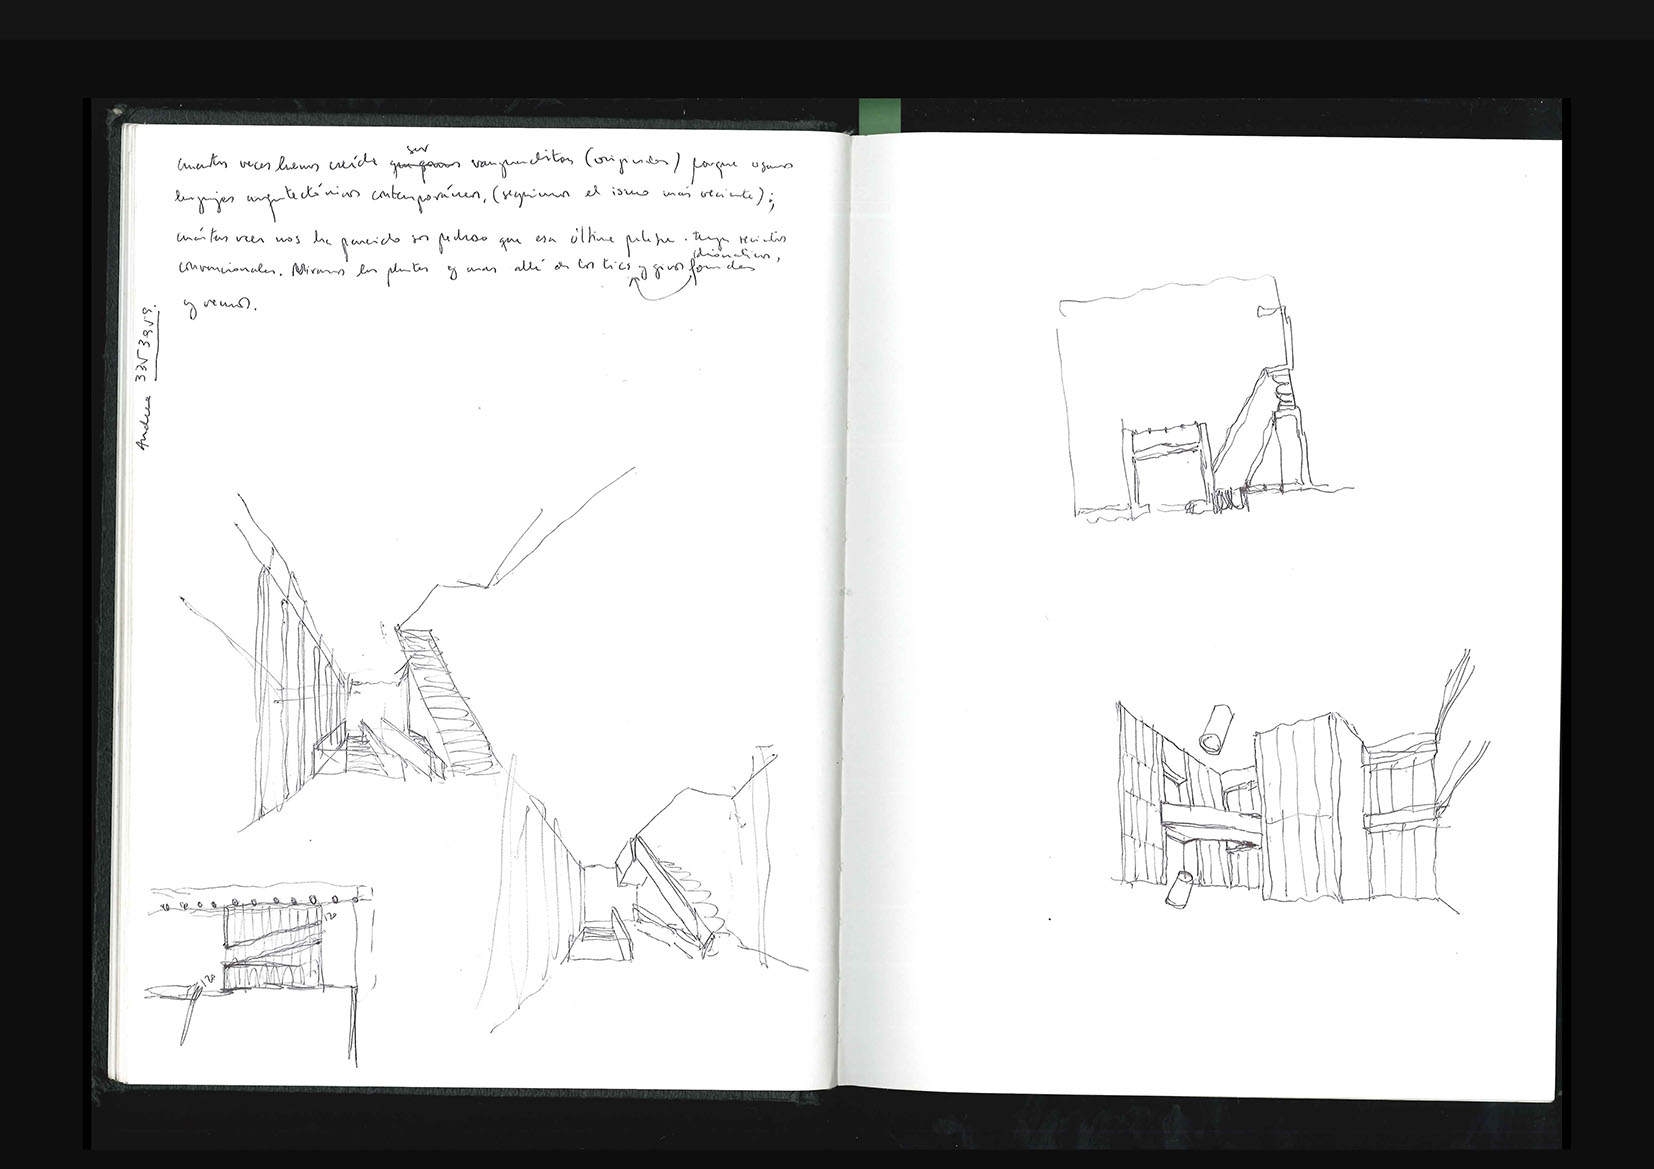 cuantas veces hemos creído ser vanguardistas (originales) porque usamos
lenguajes arquitectónicos contemporáneos, (seguimos el ismo más reciente);
cuántas veces nos ha parecido que esa última tenga recintos
convencionales. Miramos las plantas y mas allá de los tics y giros formales
idiomáticos,
y vemos.
Andrea 335 3959.
120
120